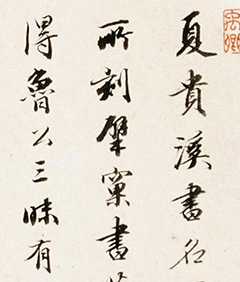 夏貴溪書名
所刻擘窠書
得魯公三昧有